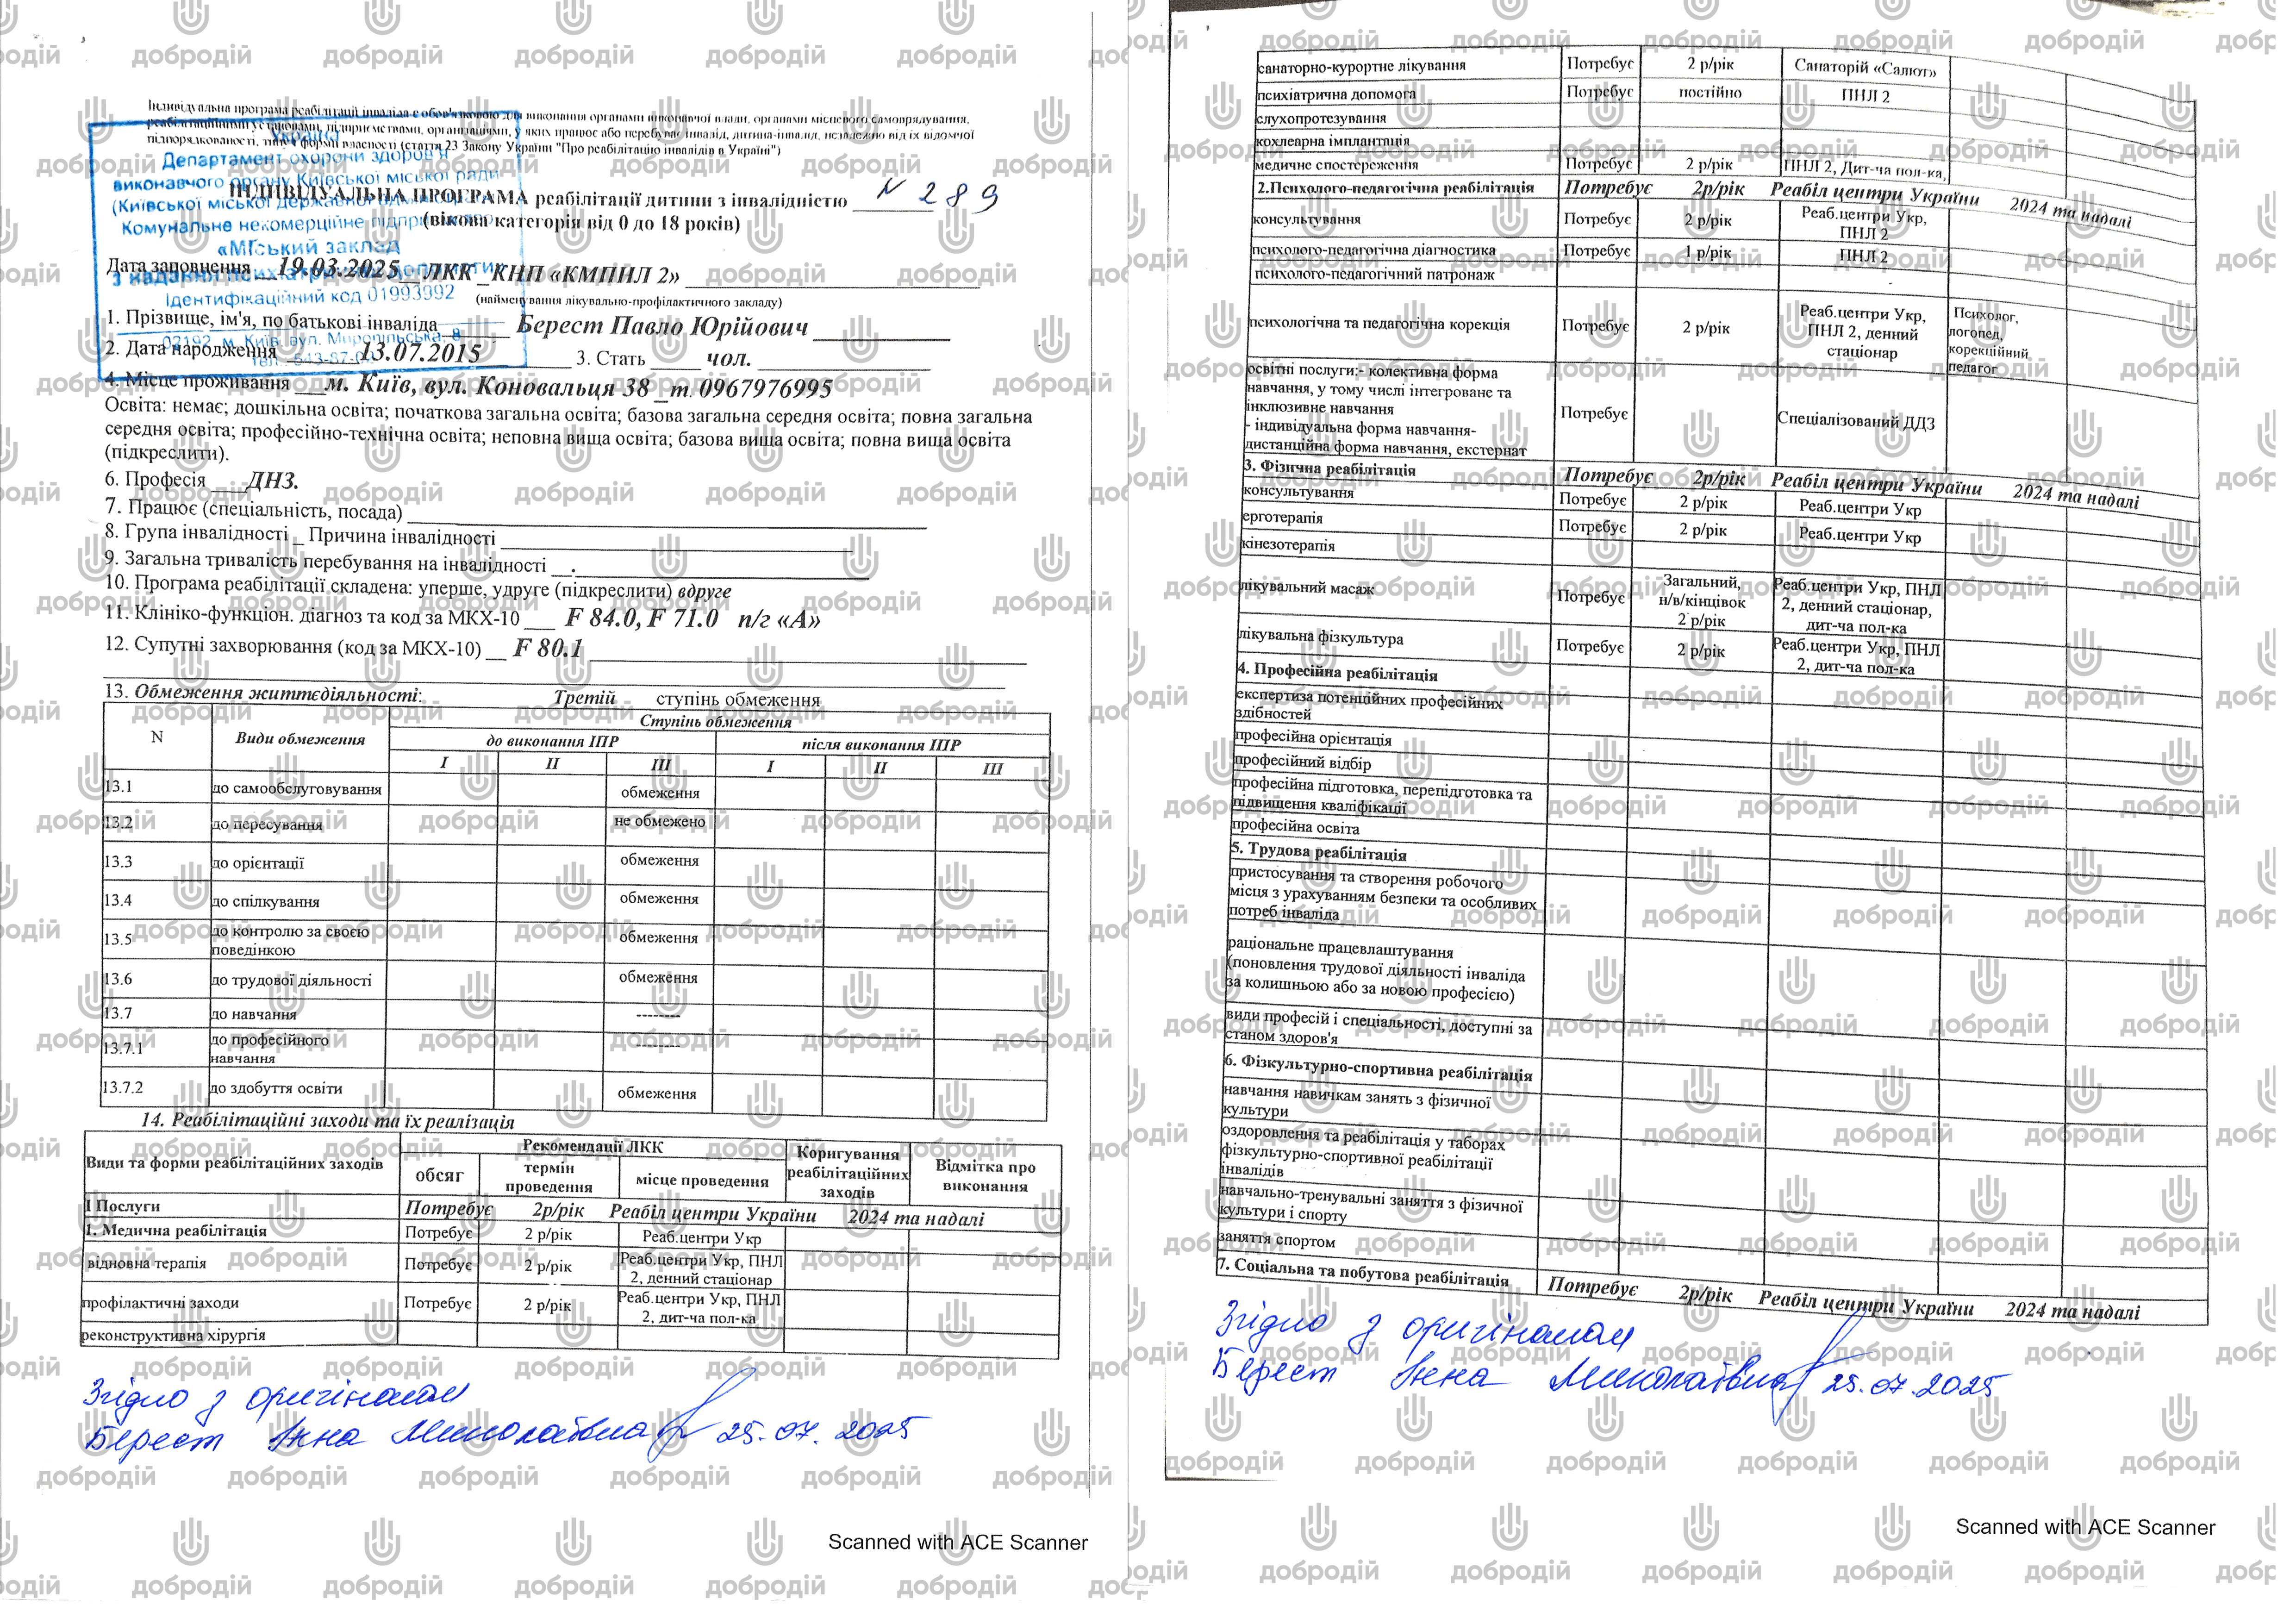 Індивідуальна програма реабілітації інваліда є обов'язковою для виконання органами виконавчої влади, органами місцевого самоврядування,
реабілітаційними установами, підприємствами, організаціями, у яких працює або перебуває інвалід, дитина-інвалід, незалежно від їх відомчої
підпорядкованості, типу і форми власності (стаття 23 Закону України "Про реабілітацію інвалідів в Україні")
Україна
Департамент охорони здоров'я
виконавчого органу Київської міської ради
(Київської міської державної адміністрації)
Комунальне некомерційне підприємство
«Міський заклад
з надання психіатричної допомоги
Ідентифікаційний код 01993992
02192, м. Київ, вул. Миропільська, 8
ІНДИВІДУАЛЬНА ПРОГРАМА реабілітації дитини з інвалідністю N 289
(вікова категорія від 0 до 18 років)
Дата заповнення 19.03.2025 ЛКК КНП «КМПНЛ 2»
(найменування лікувально-профілактичного закладу)
1. Прізвище, ім'я, по батькові інваліда Берест Павло Юрійович
2. Дата народження 13.07.2015 3. Стать чол.
4. Місце проживання м. Київ, вул. Коновальця 38 т. 0967976995
Освіта: немає; дошкільна освіта; початкова загальна освіта; базова загальна середня освіта; повна загальна
середня освіта; професійно-технічна освіта; неповна вища освіта; базова вища освіта; повна вища освіта
(підкреслити).
6. Професія ДНЗ.
7. Працює (спеціальність, посада)
8. Група інвалідності _ Причина інвалідності
9. Загальна тривалість перебування на інвалідності
10. Програма реабілітації складена: уперше, удруге (підкреслити) вдруге
11. Клініко-функціон. діагноз та код за МКХ-10 F 84.0, F 71.0 п/г «А»
12. Супутні захворювання (код за МКХ-10) F 80.1
13. Обмеження життєдіяльності: Третій ступінь обмеження
N Види обмеження Ступінь обмеження
до виконання ІПР після виконання ІПР
I II III I II III
13.1 до самообслуговування обмеження
13.2 до пересування не обмежено
13.3 до орієнтації обмеження
13.4 до спілкування обмеження
13.5 до контролю за своєю поведінкою обмеження
13.6 до трудової діяльності обмеження
13.7 до навчання --------
13.7.1 до професійного навчання --------
13.7.2 до здобуття освіти обмеження
14. Реабілітаційні заходи та їх реалізація
Види та форми реабілітаційних заходів Рекомендації ЛКК Коригування реабілітаційних заходів Відмітка про виконання
обсяг термін проведення місце проведення
І Послуги Потребує 2р/рік Реабіл центри України 2024 та надалі
1. Медична реабілітація Потребує 2 р/рік Реаб.центри Укр
відновна терапія Потребує 2 р/рік Реаб.центри Укр, ПНЛ 2, денний стаціонар
профілактичні заходи Потребує 2 р/рік Реаб.центри Укр, ПНЛ 2, дит-ча пол-ка
реконструктивна хірургія
Згідно з оригіналом
Берест Інна Миколаївна 25.07.2025
Scanned with ACE Scanner
санаторно-курортне лікування Потребує 2 р/рік Санаторій «Салют»
психіатрична допомога Потребує постійно ПНЛ 2
слухопротезування
кохлеарна імплантація
медичне спостереження Потребує 2 р/рік ПНЛ 2, Дит-ча пол-ка,
2.Психолого-педагогічна реабілітація Потребує 2р/рік Реабіл центри України 2024 та надалі
консультування Потребує 2 р/рік Реаб.центри Укр, ПНЛ 2
психолого-педагогічна діагностика Потребує 1 р/рік ПНЛ 2
психолого-педагогічний патронаж
психологічна та педагогічна корекція Потребує 2 р/рік Реаб.центри Укр, ПНЛ 2, денний стаціонар Психолог, логопед, корекційний педагог
освітні послуги:- колективна форма
навчання, у тому числі інтегроване та
інклюзивне навчання
- індивідуальна форма навчання-
дистанційна форма навчання, екстернат Потребує Спеціалізований ДДЗ
3. Фізична реабілітація Потребує 2р/рік Реабіл центри України 2024 та надалі
консультування Потребує 2 р/рік Реаб.центри Укр
ерготерапія Потребує 2 р/рік Реаб.центри Укр
кінезотерапія
лікувальний масаж Потребує Загальний, н/в/кінцівок 2 р/рік Реаб.центри Укр, ПНЛ 2, денний стаціонар, дит-ча пол-ка
лікувальна фізкультура Потребує 2 р/рік Реаб.центри Укр, ПНЛ 2, дит-ча пол-ка
4. Професійна реабілітація
експертиза потенційних професійних
здібностей
професійна орієнтація
професійний відбір
професійна підготовка, перепідготовка та
підвищення кваліфікації
професійна освіта
5. Трудова реабілітація
пристосування та створення робочого
місця з урахуванням безпеки та особливих
потреб інваліда
раціональне працевлаштування
(поновлення трудової діяльності інваліда
за колишньою або за новою професією)
види професій і спеціальності, доступні за
станом здоров'я
6. Фізкультурно-спортивна реабілітація
навчання навичкам занять з фізичної
культури
оздоровлення та реабілітація у таборах
фізкультурно-спортивної реабілітації
інвалідів
навчально-тренувальні заняття з фізичної
культури і спорту
заняття спортом
7. Соціальна та побутова реабілітація Потребує 2р/рік Реабіл центри України 2024 та надалі
Згідно з оригіналом
Берест Інна Миколаївна 25.07.2025
Scanned with ACE Scanner
добродій